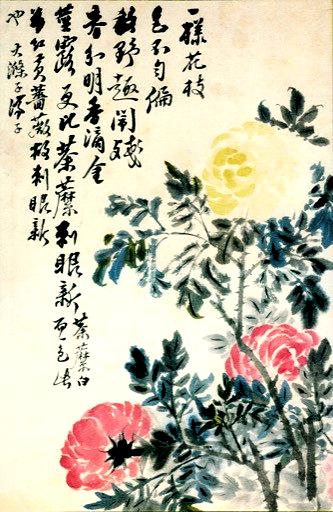 一樣花枝
色不勻偏
於野趣鬥殘
春分明香滴金
莖露更比荼蘼刺眼新荼蘼白
而色
紅黃薔薇故刺眼新
也大滌子濟